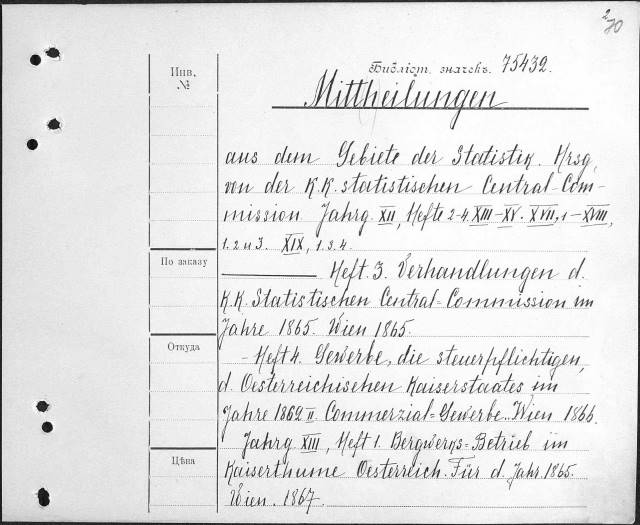 2
70
Инв.
№
Библіот. значекъ. 75432.
Mittheilungen
aus dem Gebiete der Statistik. Hrsg.
von der K.K. statistischen Central-Com-
mission Jahrg. XII, Hefte 2-4. XIII-XV. XVII, 1-XVIII,
1. 2 u 3. XIX, 1. 3. 4.
По заказу
Heft. 3. Verhandlungen d.
K.K. Statistischen Central=Commission im
Jahre 1865. Wien 1865.
Откуда
- Heft 4. Gewerbe, die steuerpflichtigen,
d. Oesterreichischen Kaiserstaates im
Jahre 1862 II. Commerzial=Gewerbe. Wien 1866.
Jahrg XIII, Heft 1. Bergwerks=Betrieb im
Цѣна
Kaiserthume Oesterreich. Für d. Jahr. 1865.
Wien. 1867.